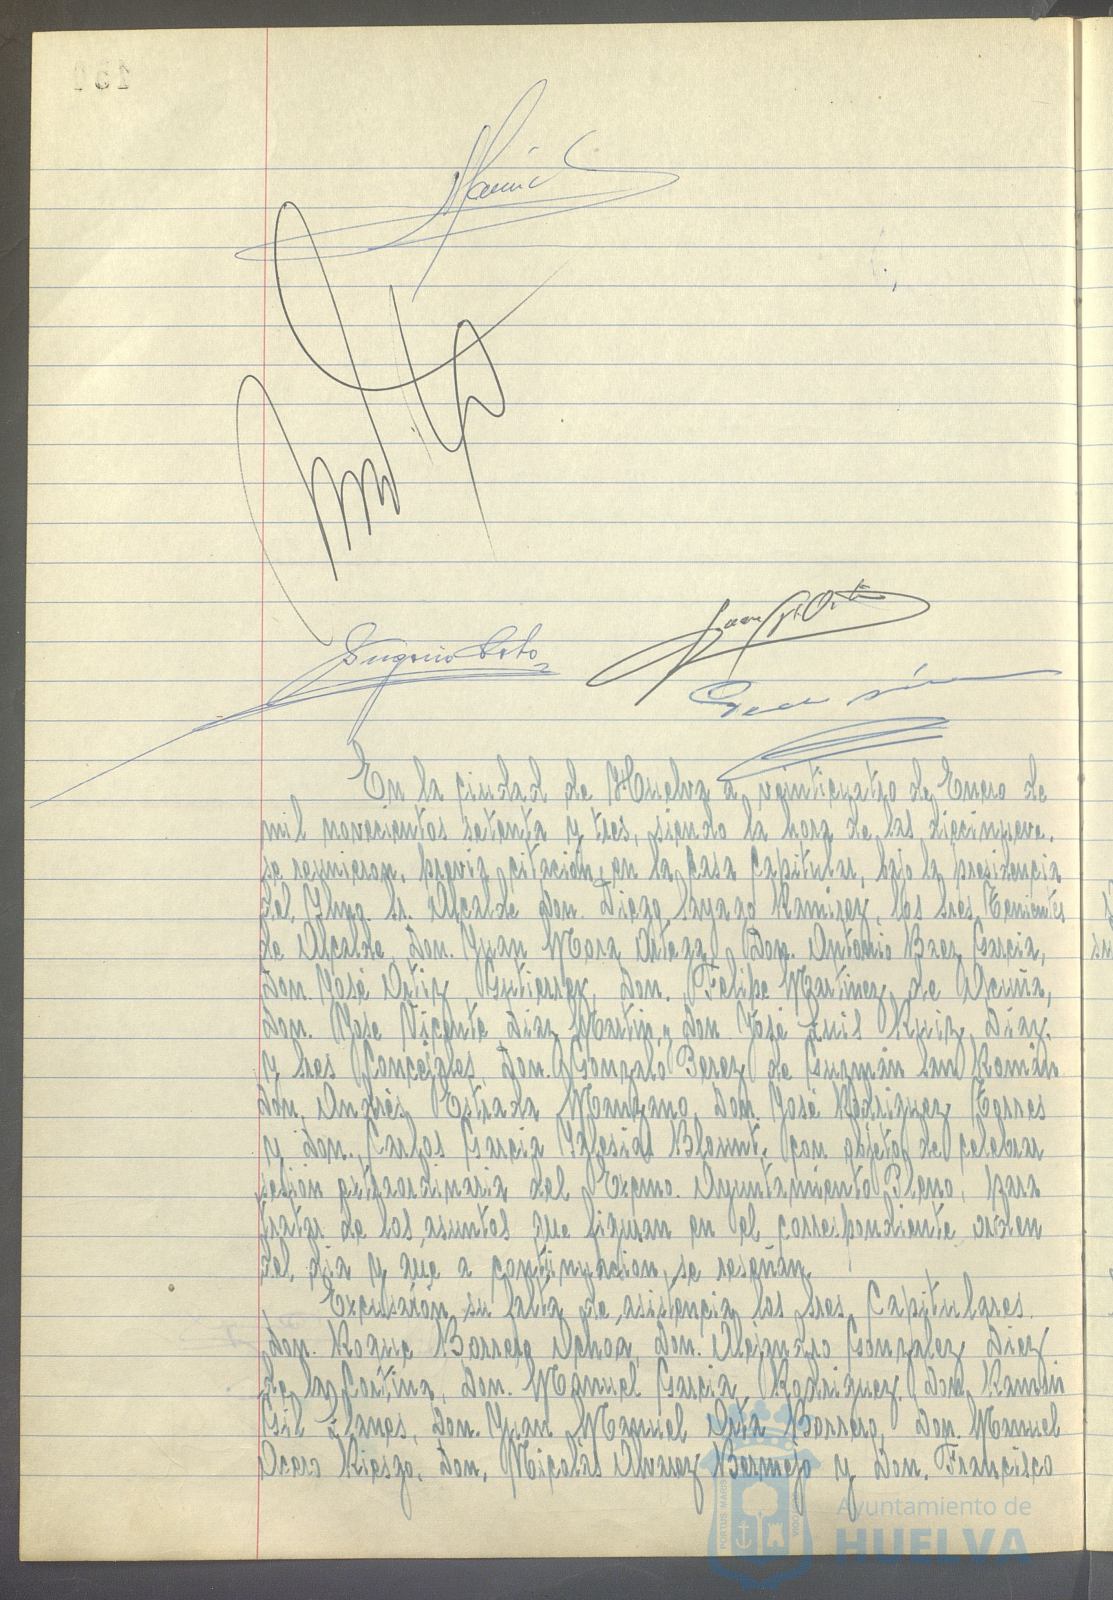 Eugenio Soto
En la ciudad de Huelva a veinticuatro de Enero de
mil novecientos setenta y tres, siendo la hora de las diecinueve,
se reunieron, previa citación, en la Casa Capitular, bajo la presidencia
del Ilmo. Sr. Alcalde Don. Diego Sayago Ramirez, los Sres Tenientes
de Alcalde, Don. Juan Mora Ortega, Don. Antonio Baez Garcia,
Don. José Ortiz Gutierrez, Don. Felipe Martinez de Acuña,
Don. Jose Vicente Diaz Martin y Don José Luis Ruiz Diaz,
y Sres Concejales, Don. Gonzalo Perez de Guzmán San Román
Don, Andrés Estrada Manzano, Don. José Rodriguez Torres
y Don. Carlos Garcia Iglesias Blount, con objeto de celebrar
sesion extraordinaria del Excmo. Ayuntamiento Pleno, para
tratar de los asuntos que figuran en el correspondiente orden
del dia y que a continuacion, se reseñan.
Excusarón su falta de asistencia los Sres, Capitulares
Don. Roque Barrero Ochoa, Don. Alejandro Gonzalez Diez
de la Cortina, Don. Manuel Garcia Rodriguez, Don Ramón
Gil Llanes, Don. Juan Manuel Orta Borrero, Don. Manuel
Otero Riesgo, Don. Nicolás Alvarez Bermejo y Don. Francisco
Ayuntamiento de
HUELVA